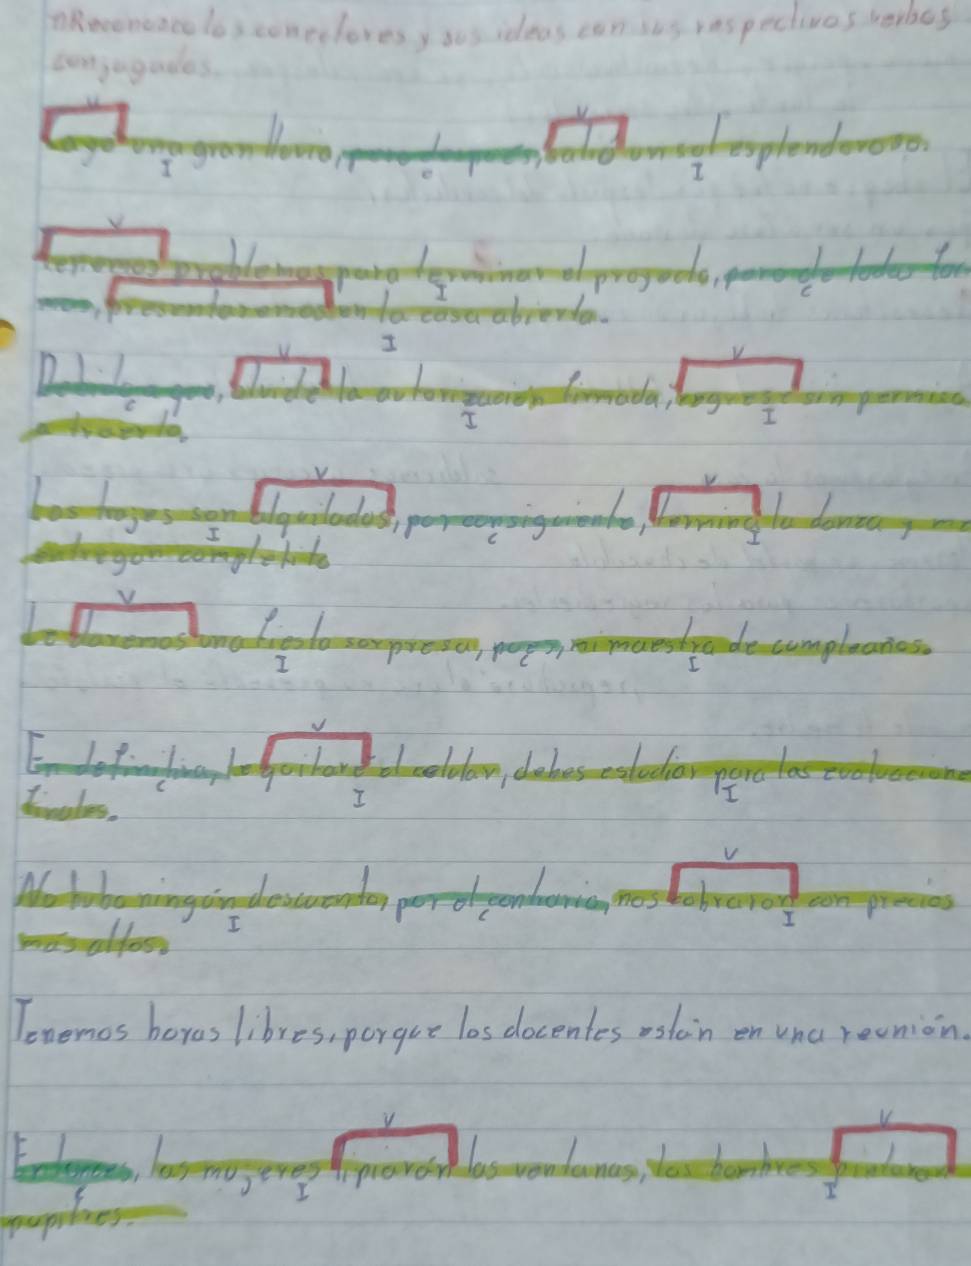 Reconozco los conectores y sus ideas con sus respectivos verbos
conjugados.
V V
Cayó una gran lluvia, pero después, salió un sol esplendoroso.
I c I
V
Tenemos problemas para terminar el proyecto, pero de todas for
mas, presentaremos en la casa abierta.
I c
I
V V
Debido a que, olvide la autorización firmada, regresé sin permiso
c I I
a traerla.
V V
Los trajes son alquilados, por consiguiente, termina la danza y me
I c I
entregan completito
V
Le haremos una fiesta sorpresa, pues, mi maestra de cumpleaños.
I c I
V
En definitiva, le quitaré el celular, debes estudiar para las evaluacione
c I I
finales.
V
No hubo ningún descuento, por el contrario, nos cobraron con precios
I c I
más altos.
Tenemos horas libres, porque los docentes están en una reunión.
V V
Entonces, las mujeres lipiarón las ventanas, los hombres pintaron
c I I
pupitres.